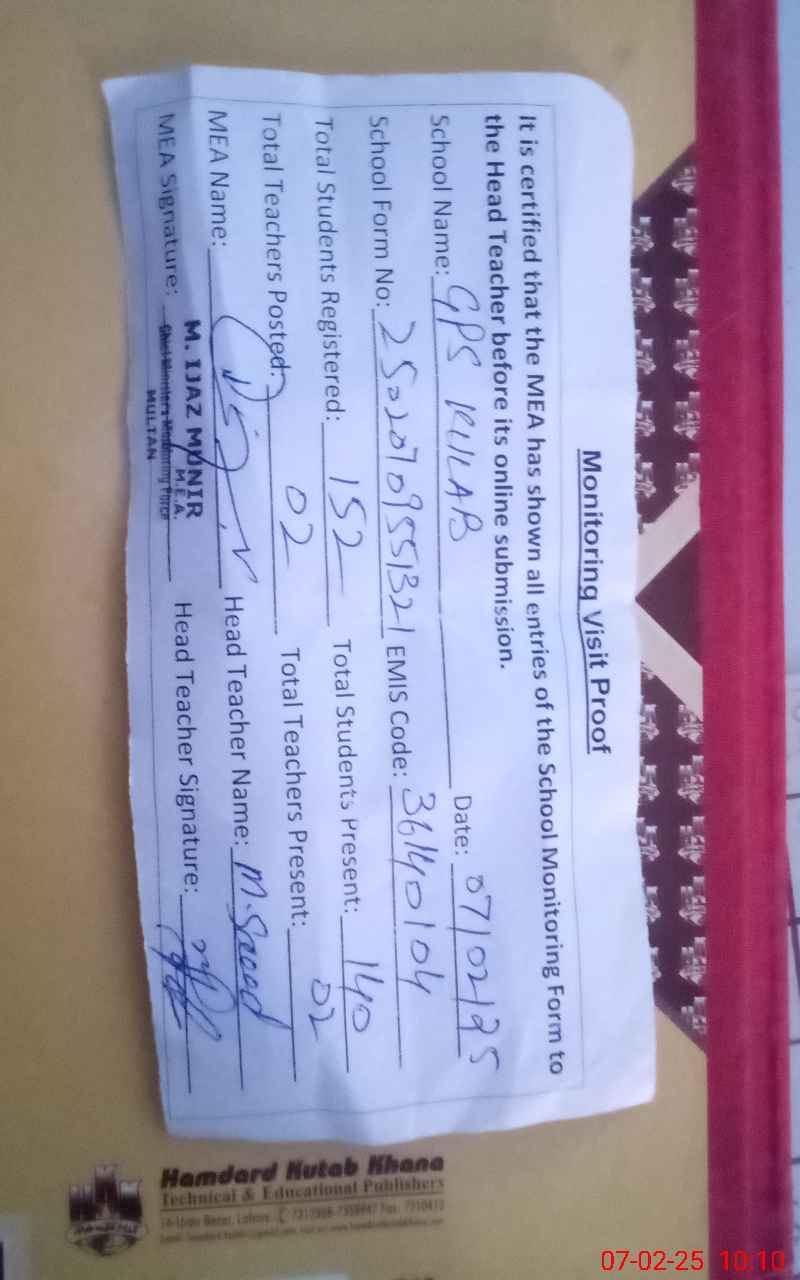 Monitoring Visit Proof
It is certified that the MEA has shown all entries of the School Monitoring Form to
the Head Teacher before its online submission.
School Name: GPS KULAB Date: 07/02/25
School Form No: 25020709551321 EMIS Code: 36140104
Total Students Registered: 152 Total Students Present: 140
Total Teachers Posted: 02 Total Teachers Present: 02
MEA Name: Head Teacher Name: M. Saeed
M. IJAZ MUNIR
M.E.A.
MEA Signature: Head Teacher Signature:
Monitoring Force
MULTAN
Hamdard Kutab Khana
Technical & Educational Publishers
07-02-25 10:10